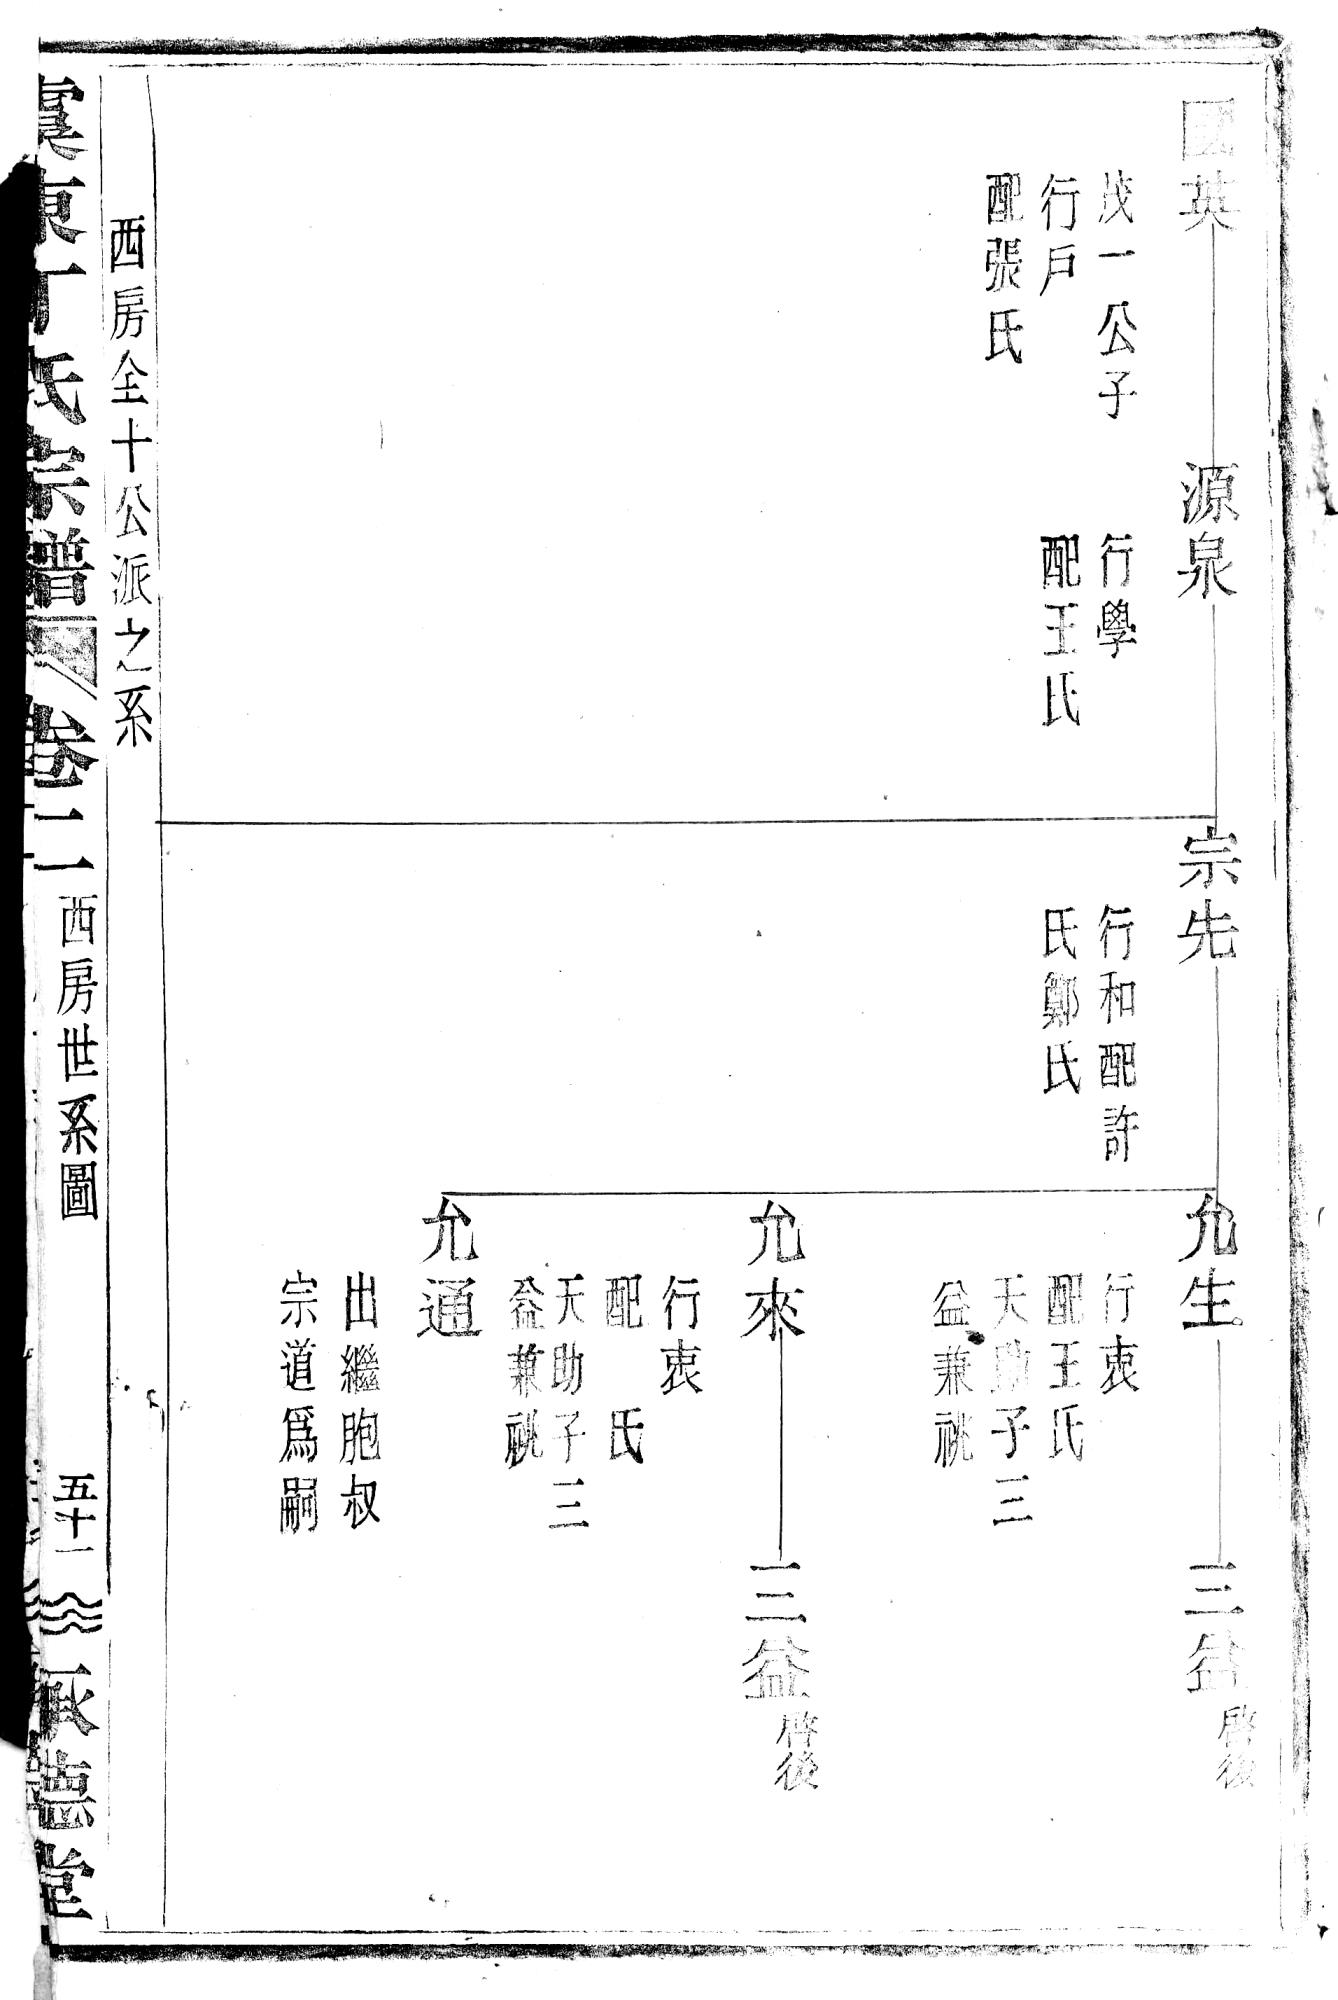 國英
茂一公子
行戶
配張氏
源泉
行學
配王氏
宗先
行和配許
氏鄭氏
允生
行衷
配王氏
天助子三
益兼祧
三益
啓後
允來
行衷
配 氏
天助子三
益兼祧
三益
啓後
允通
出繼胞叔
宗道爲嗣
西房全十公派之系
虞東丁氏宗譜 卷二 西房世系圖 五十一 承德堂